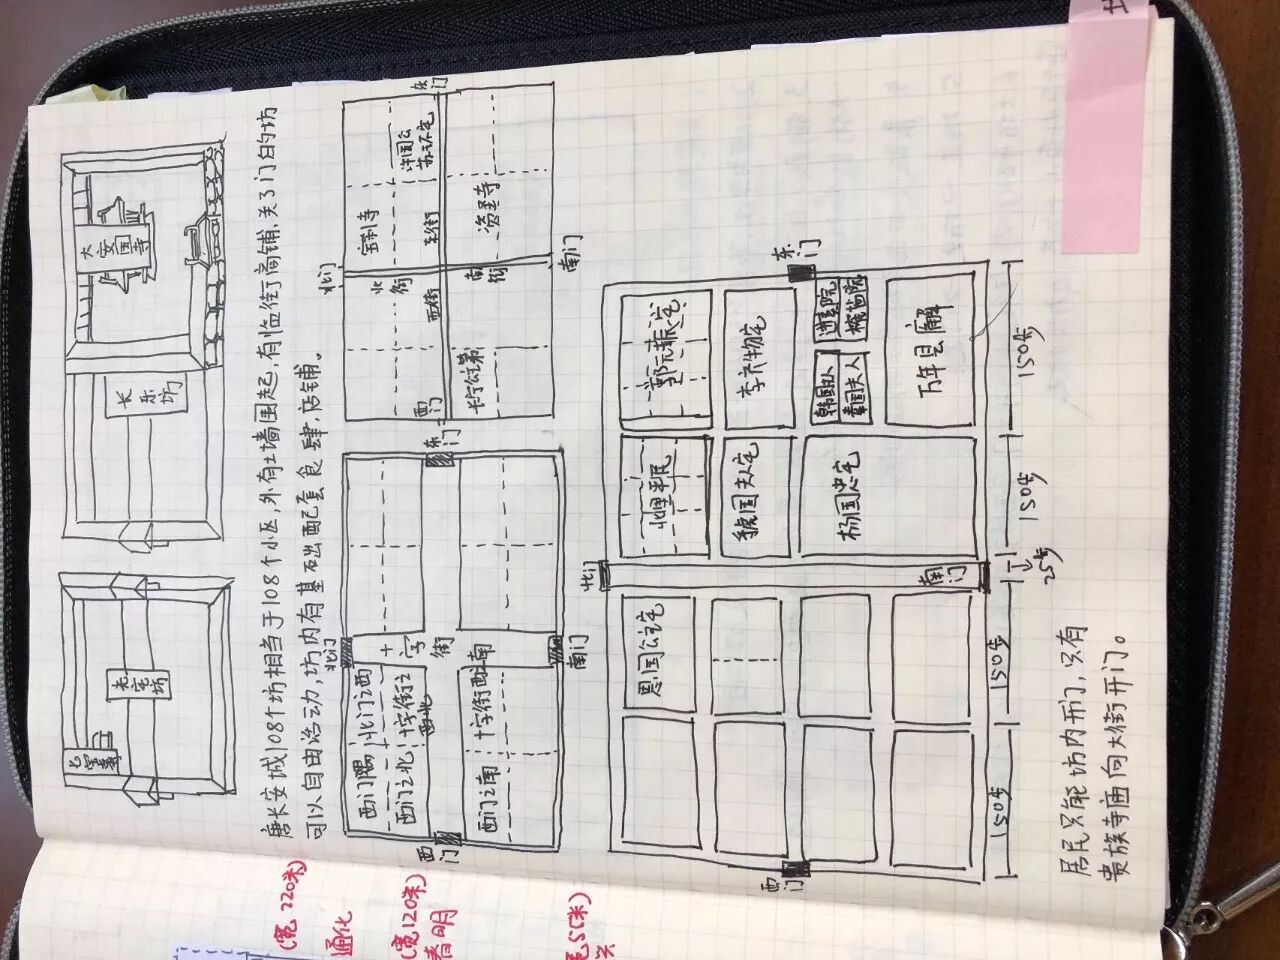 大安国寺
长乐坊
光宅坊
唐长安城108个坊相当于108个小区,外有土墙围起,有临街商铺,关了门的坊
可以自由活动,坊内有基础配套食肆,店铺。
北门
西门隅
北门之西
西门之北
十字街之西北
西门之南
十字街西之南
十字街
西门
东门
南门
北门
宝刹寺
许国公苏瓌宅
北街
西街
东街
南街
资圣寺
长宁公主第
西门
东门
南门
北门
东门
西门
南门
郭元振宅
李齐物宅
进奏院
韩国夫人
秦国夫人
万年县廨
北里平民
虢国夫人宅
杨国忠宅
恩国公宅
150步
150步
25步
150步
150步
居民只能坊内开门,只有
贵族寺庙向大街开门。
(宽220米)
通化
(宽120米)
春明